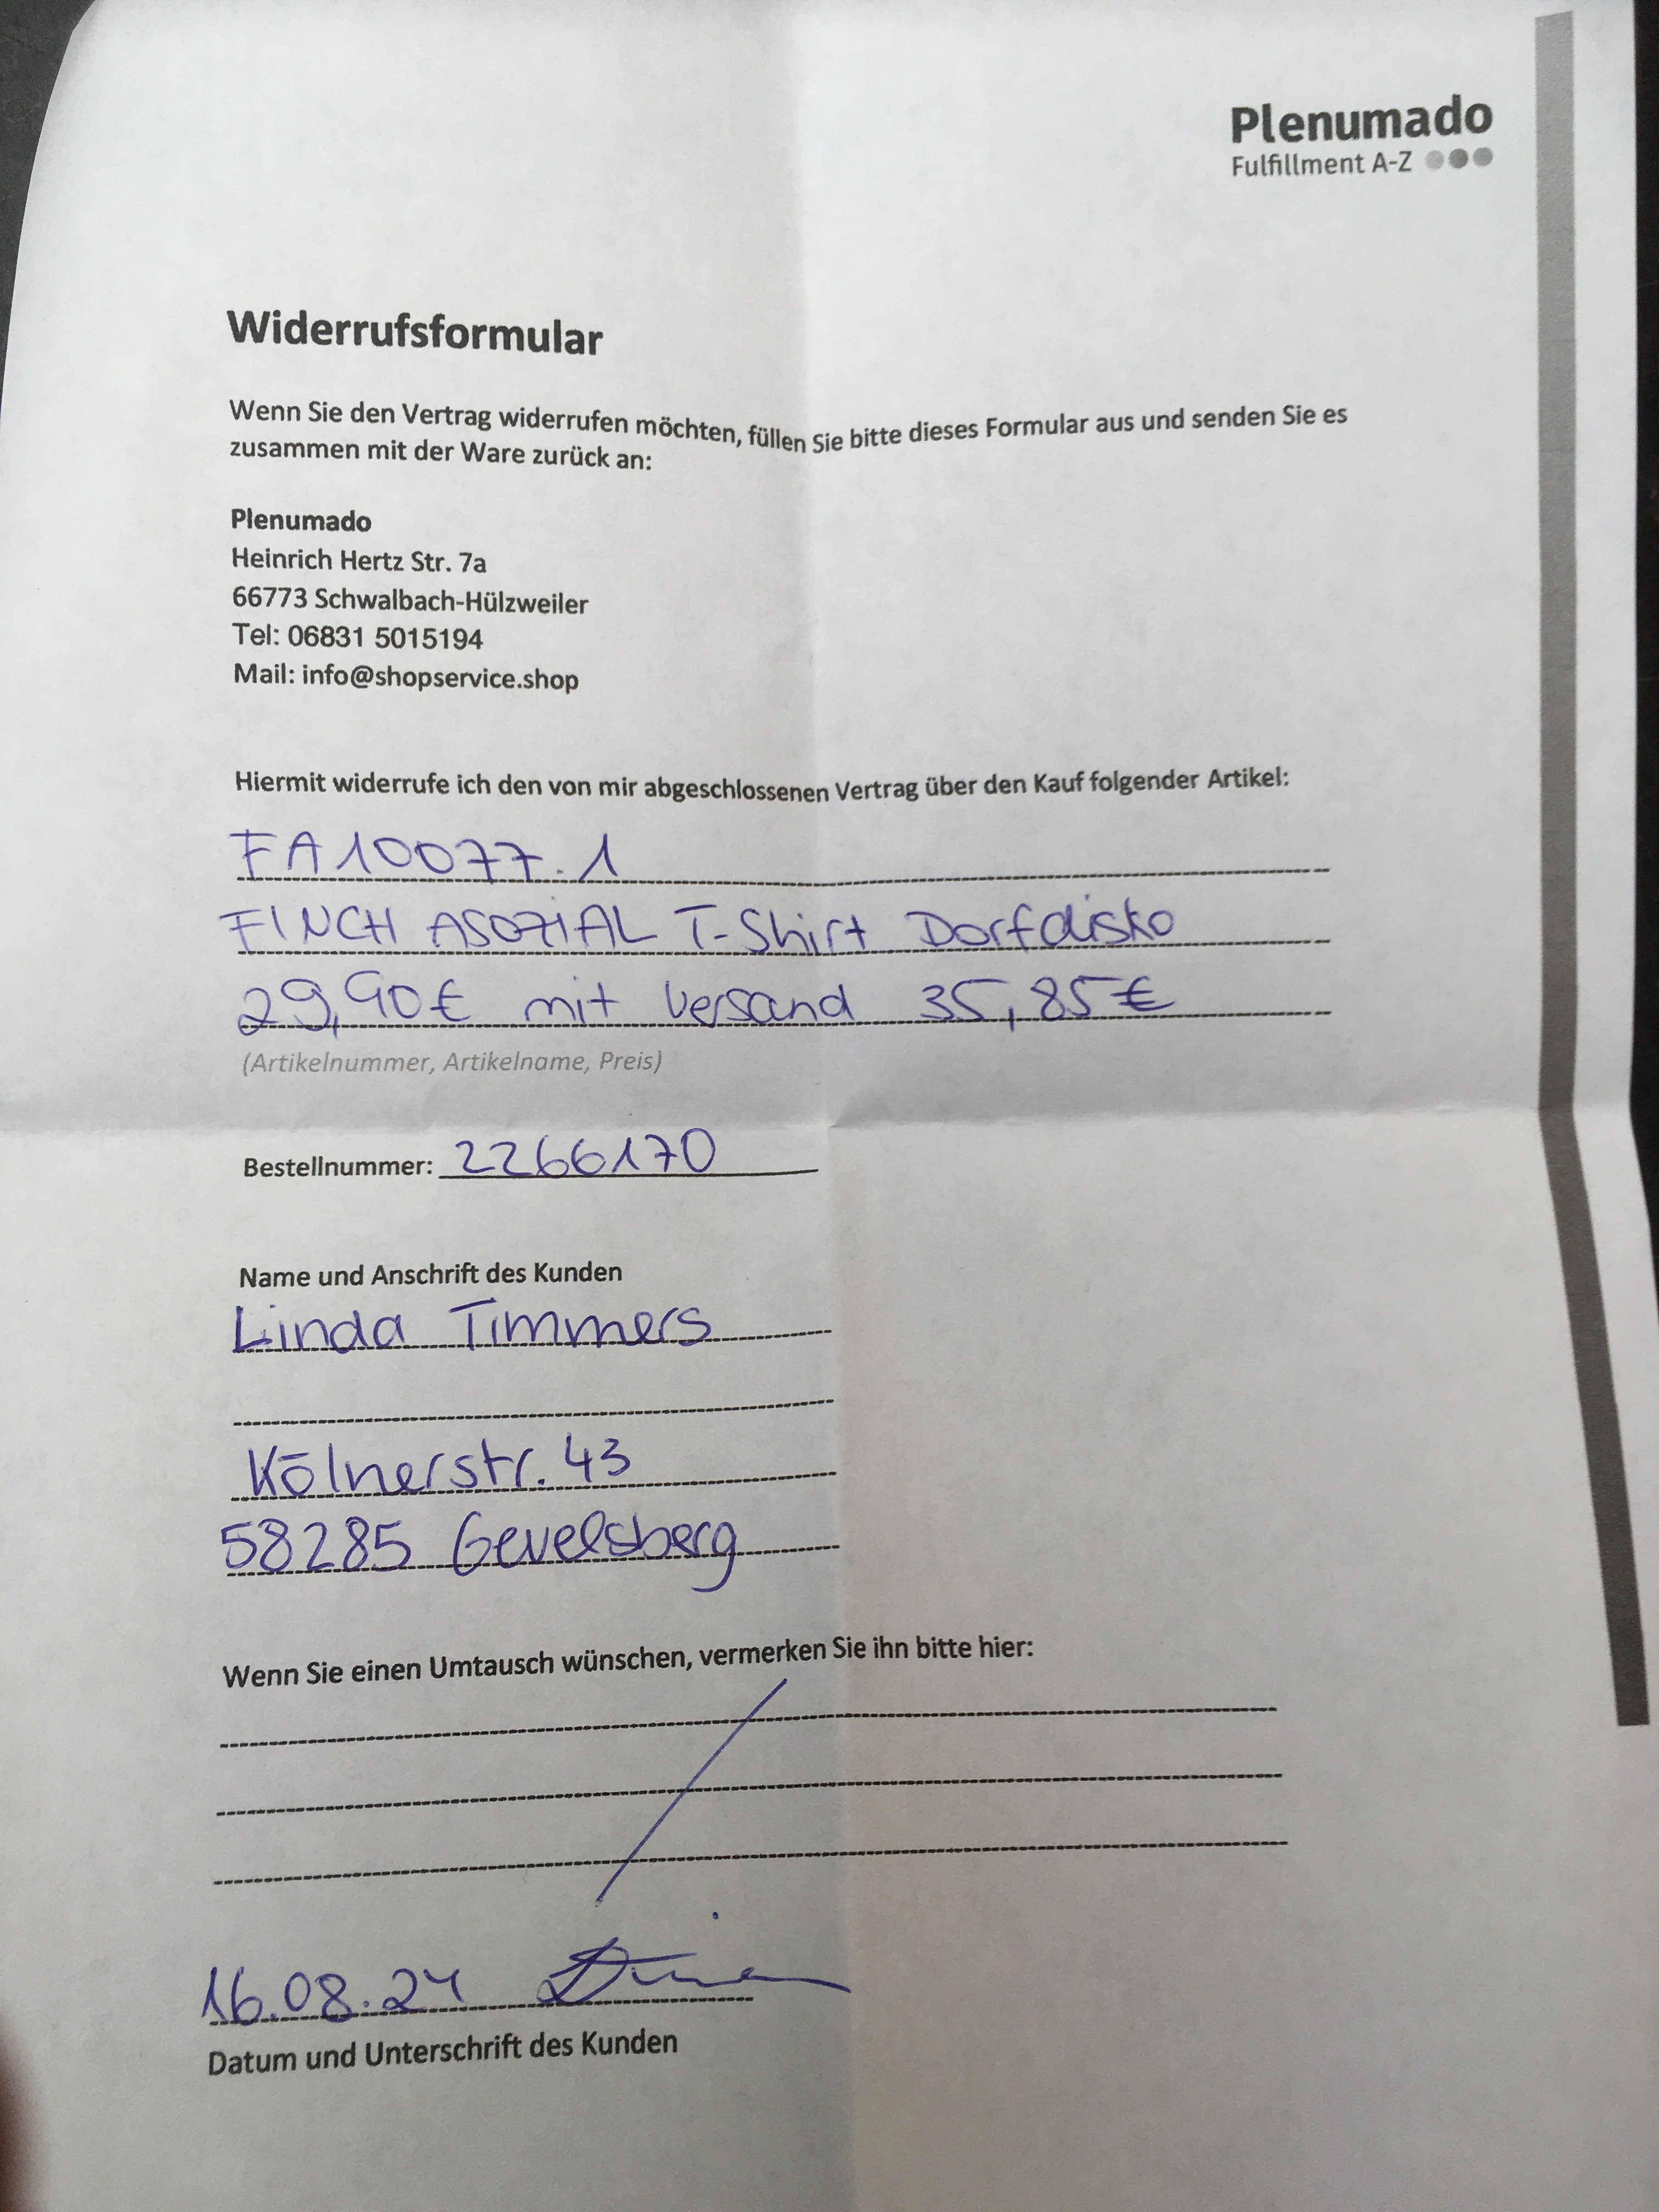 Plenumado
Fulfillment A-Z
Widerrufsformular
Wenn Sie den Vertrag widerrufen möchten, füllen Sie bitte dieses Formular aus und senden Sie es
zusammen mit der Ware zurück an:
Plenumado
Heinrich Hertz Str. 7a
66773 Schwalbach-Hülzweiler
Tel: 06831 5015194
Mail: info@shopservice.shop
Hiermit widerrufe ich den von mir abgeschlossenen Vertrag über den Kauf folgender Artikel:
FA10077.1
FINCH ASOZIAL T-Shirt Dorfdisko
29,90€ mit Versand 35,85€
(Artikelnummer, Artikelname, Preis)
Bestellnummer: 2266170
Name und Anschrift des Kunden
Linda Timmers
Kölnerstr. 43
58285 Gevelsberg
Wenn Sie einen Umtausch wünschen, vermerken Sie ihn bitte hier:
16.08.24
Datum und Unterschrift des Kunden